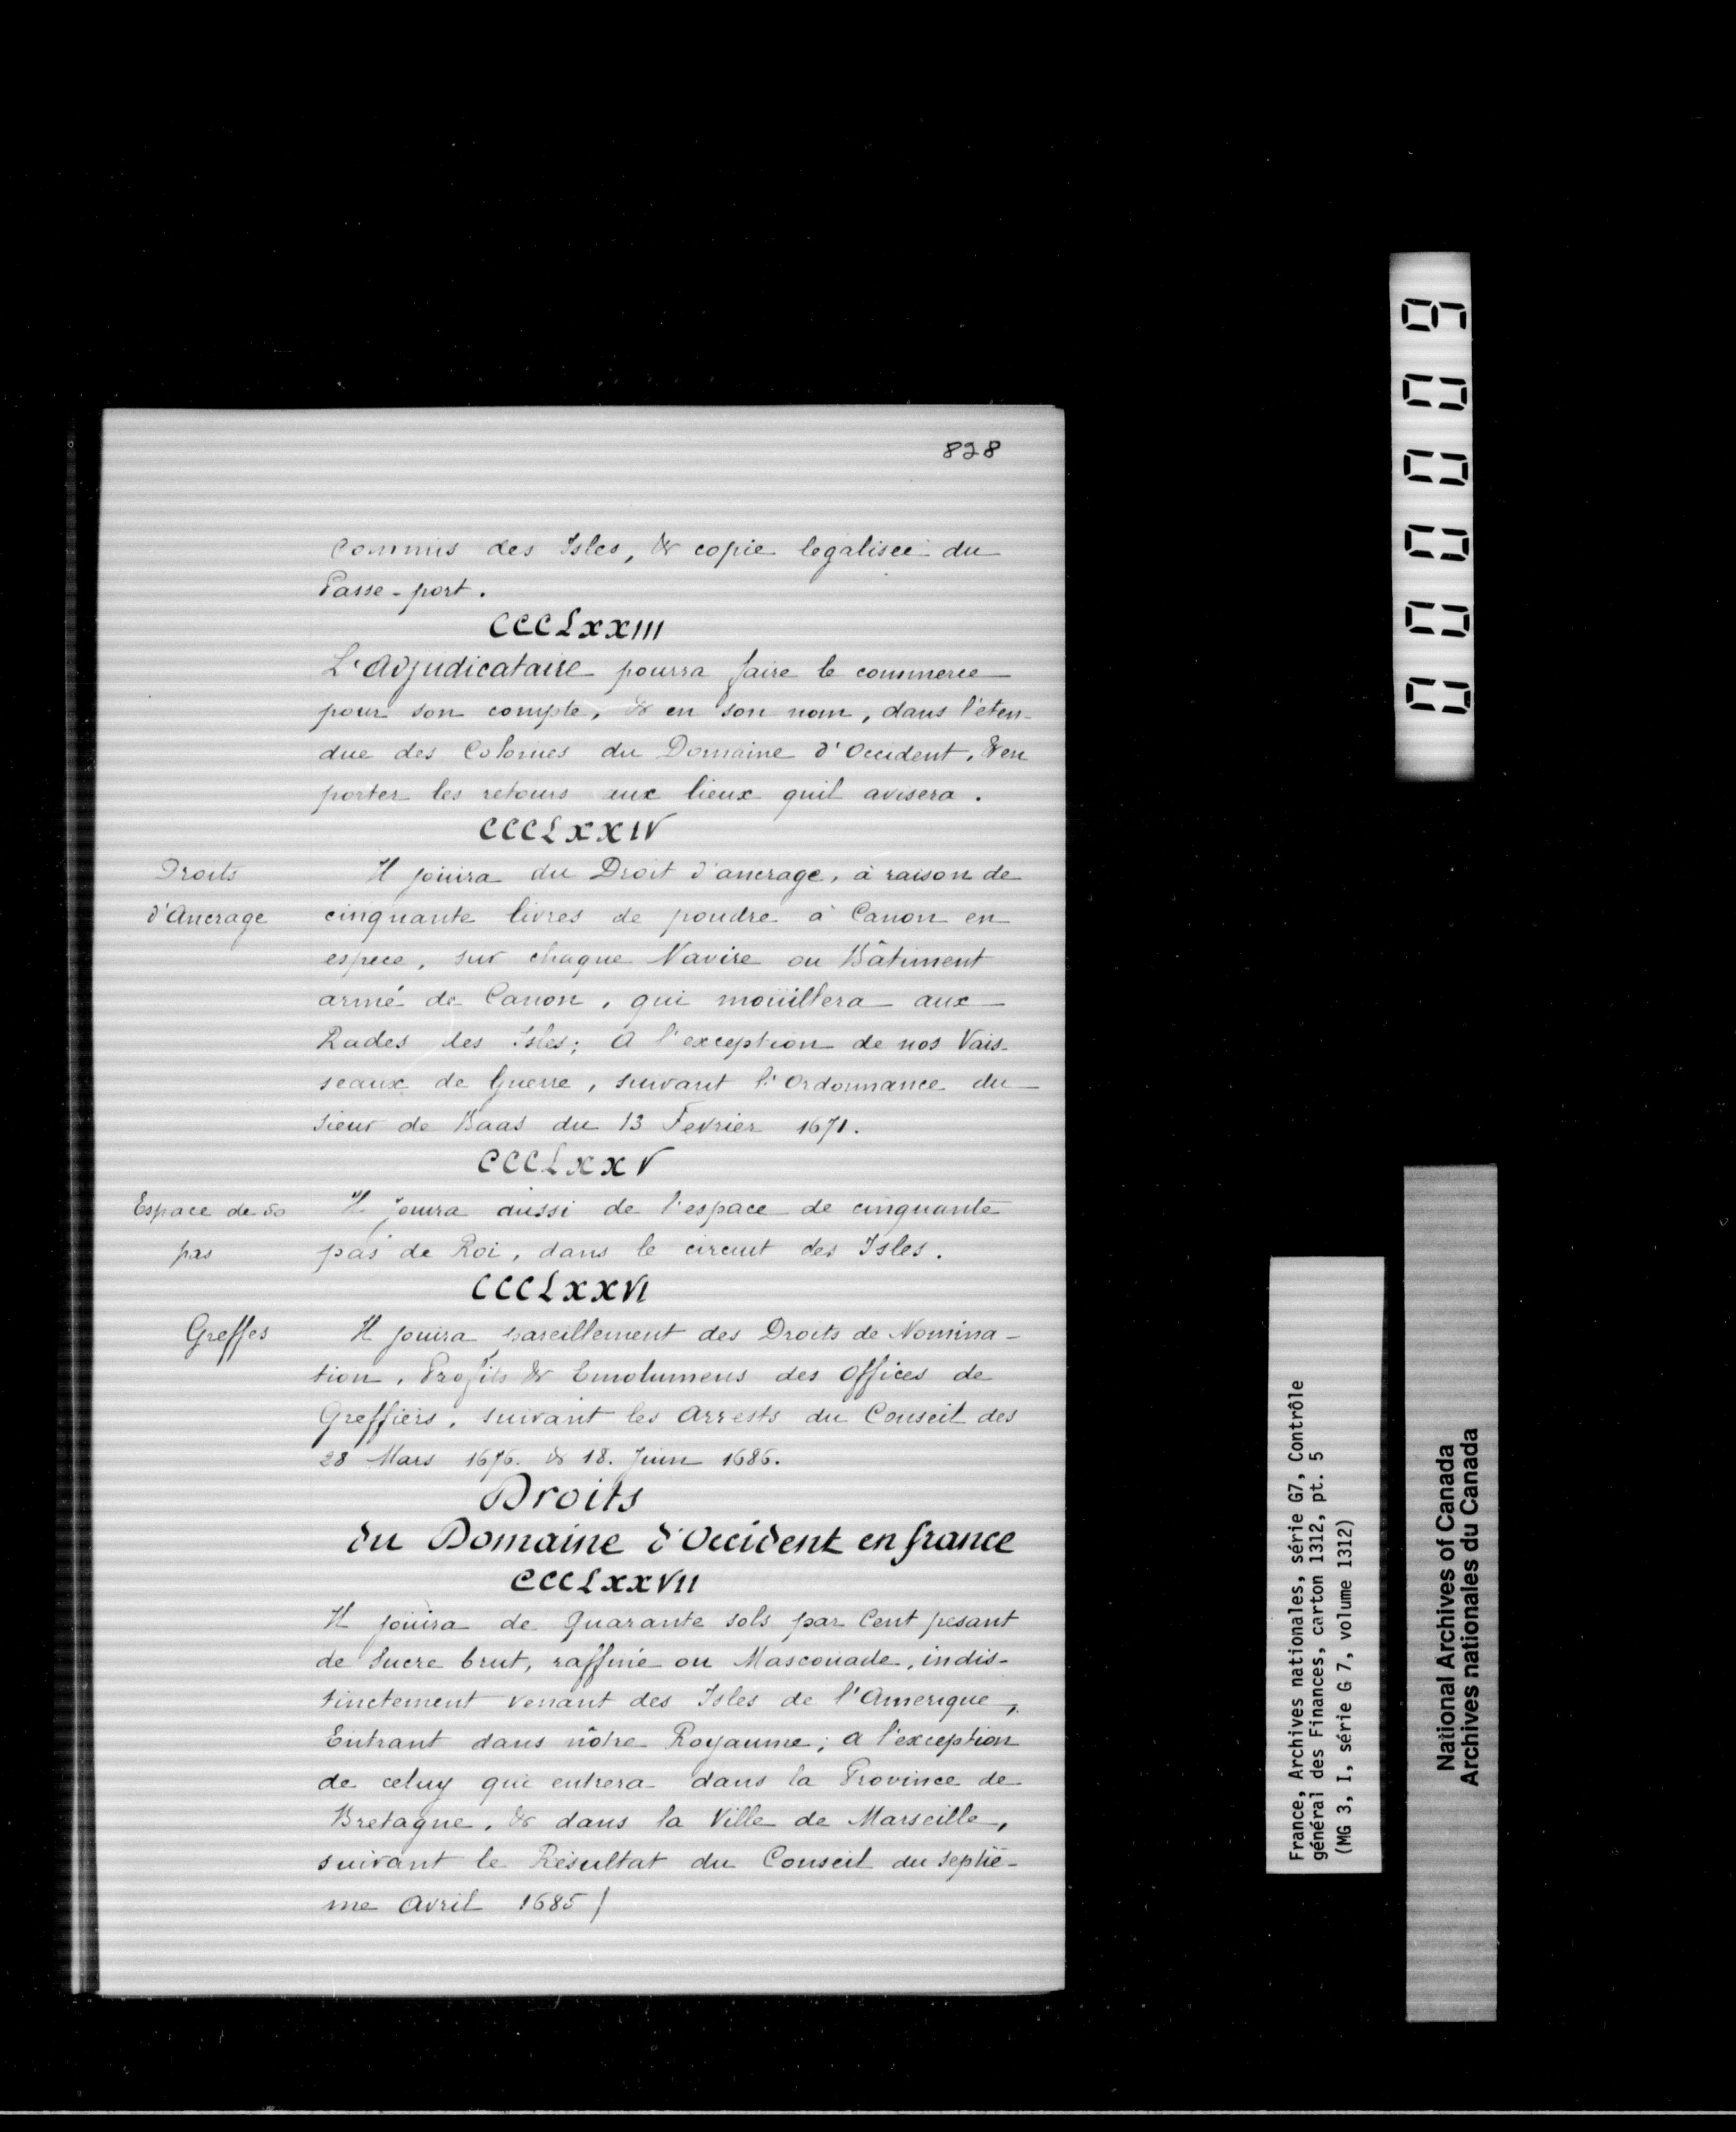 828
Commis des Isles, & copie legalisée du
Passe-port.
CCCLXXIII
L'Adjudicataire pourra faire le commerce
pour son compte, & en son nom, dans l'éten-
due des Colonies du Domaine d'Occident, & en
porter les retours aux lieux qu'il avisera.
CCCLXXIV
Droits
d'Ancrage
Il joüira du Droit d'ancrage, à raison de
cinquante livres de poudre à Canon en
espece, sur chaque Navire ou Bâtiment
armé de Canon, qui moüillera aux
Rades des Isles; A l'exception de nos Vais-
seaux de Guerre, suivant l'Ordonnance du
sieur de Baas du 13 Fevrier 1671.
CCCLXXV
Espace de 50
pas
Il Jouira aussi de l'espace de cinquante
pas de Roi, dans le circuit des Isles.
CCCLXXVI
Greffes
Il jouira pareillement des Droits de Nomina-
tion, Profits & Emolumens des Offices de
Greffiers, suivant les Arrests du Conseil des
28 Mars 1676. & 18. Juin 1686.
Droits
du Domaine d'Occident en france
CCCLXXVII
Il joüira de Quarante sols par Cent pesant
de Sucre brut, raffiné ou Mascouade, indis-
tinctement venant des Isles de l'Amerique,
Entrant dans nôtre Royaume; a l'exception
de celuy qui entrera dans la Province de
Bretagne, & dans la Ville de Marseille,
suivant le Résultat du Conseil du septié-
me Avril 1685/
000009
France, Archives nationales, série G7, Contrôle
général des Finances, carton 1312, pt. 5
(MG 3, I, série G 7, volume 1312)
National Archives of Canada
Archives nationales du Canada